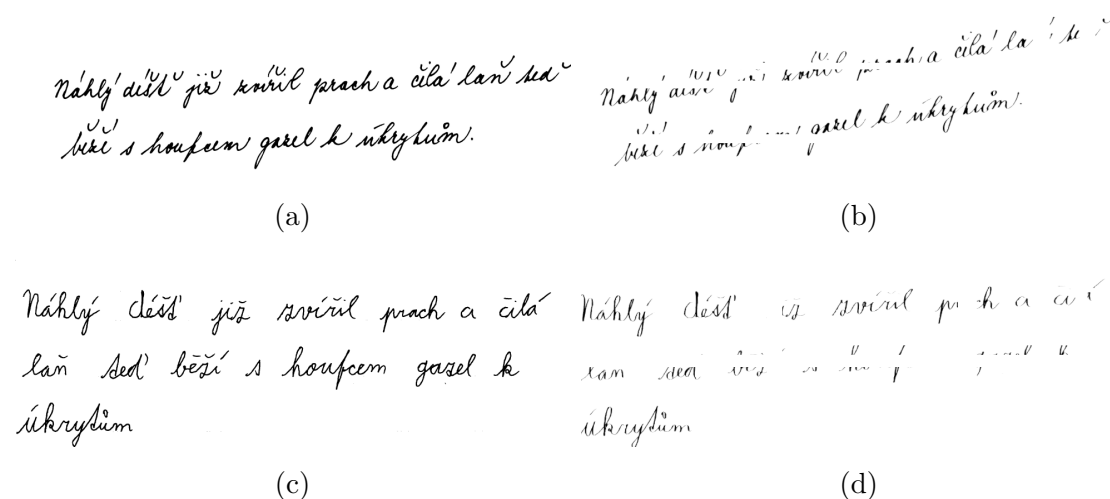 Náhlý déšť již zvířil prach a čilá laň teď
běží s houfcem gazel k úkrytům.
(a)
Náhlý již zvířil a čilá
běží s gazel k úkrytům.
(b)
Náhlý déšť již zvířil prach a čilá
laň teď běží s houfcem gazel k
úkrytům
(c)
Náhlý déšť zvířil a
s
úkrytům
(d)